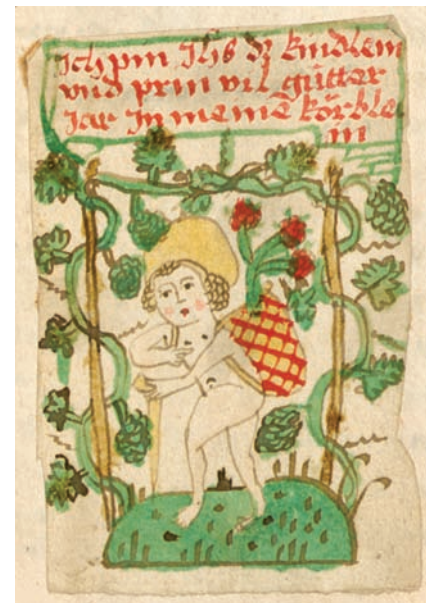 Ich pin Jhs dz kindlein
vnd prin vil gůtter
Jar In meinē körble
in